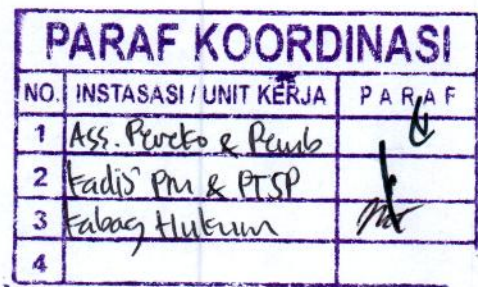 PARAF KOORDINASI
NO. INSTASASI / UNIT KERJA PARAF
1 Ass. Pereko & Pemb
2 Kadis PM & PTSP
3 Kabag Hukum
4